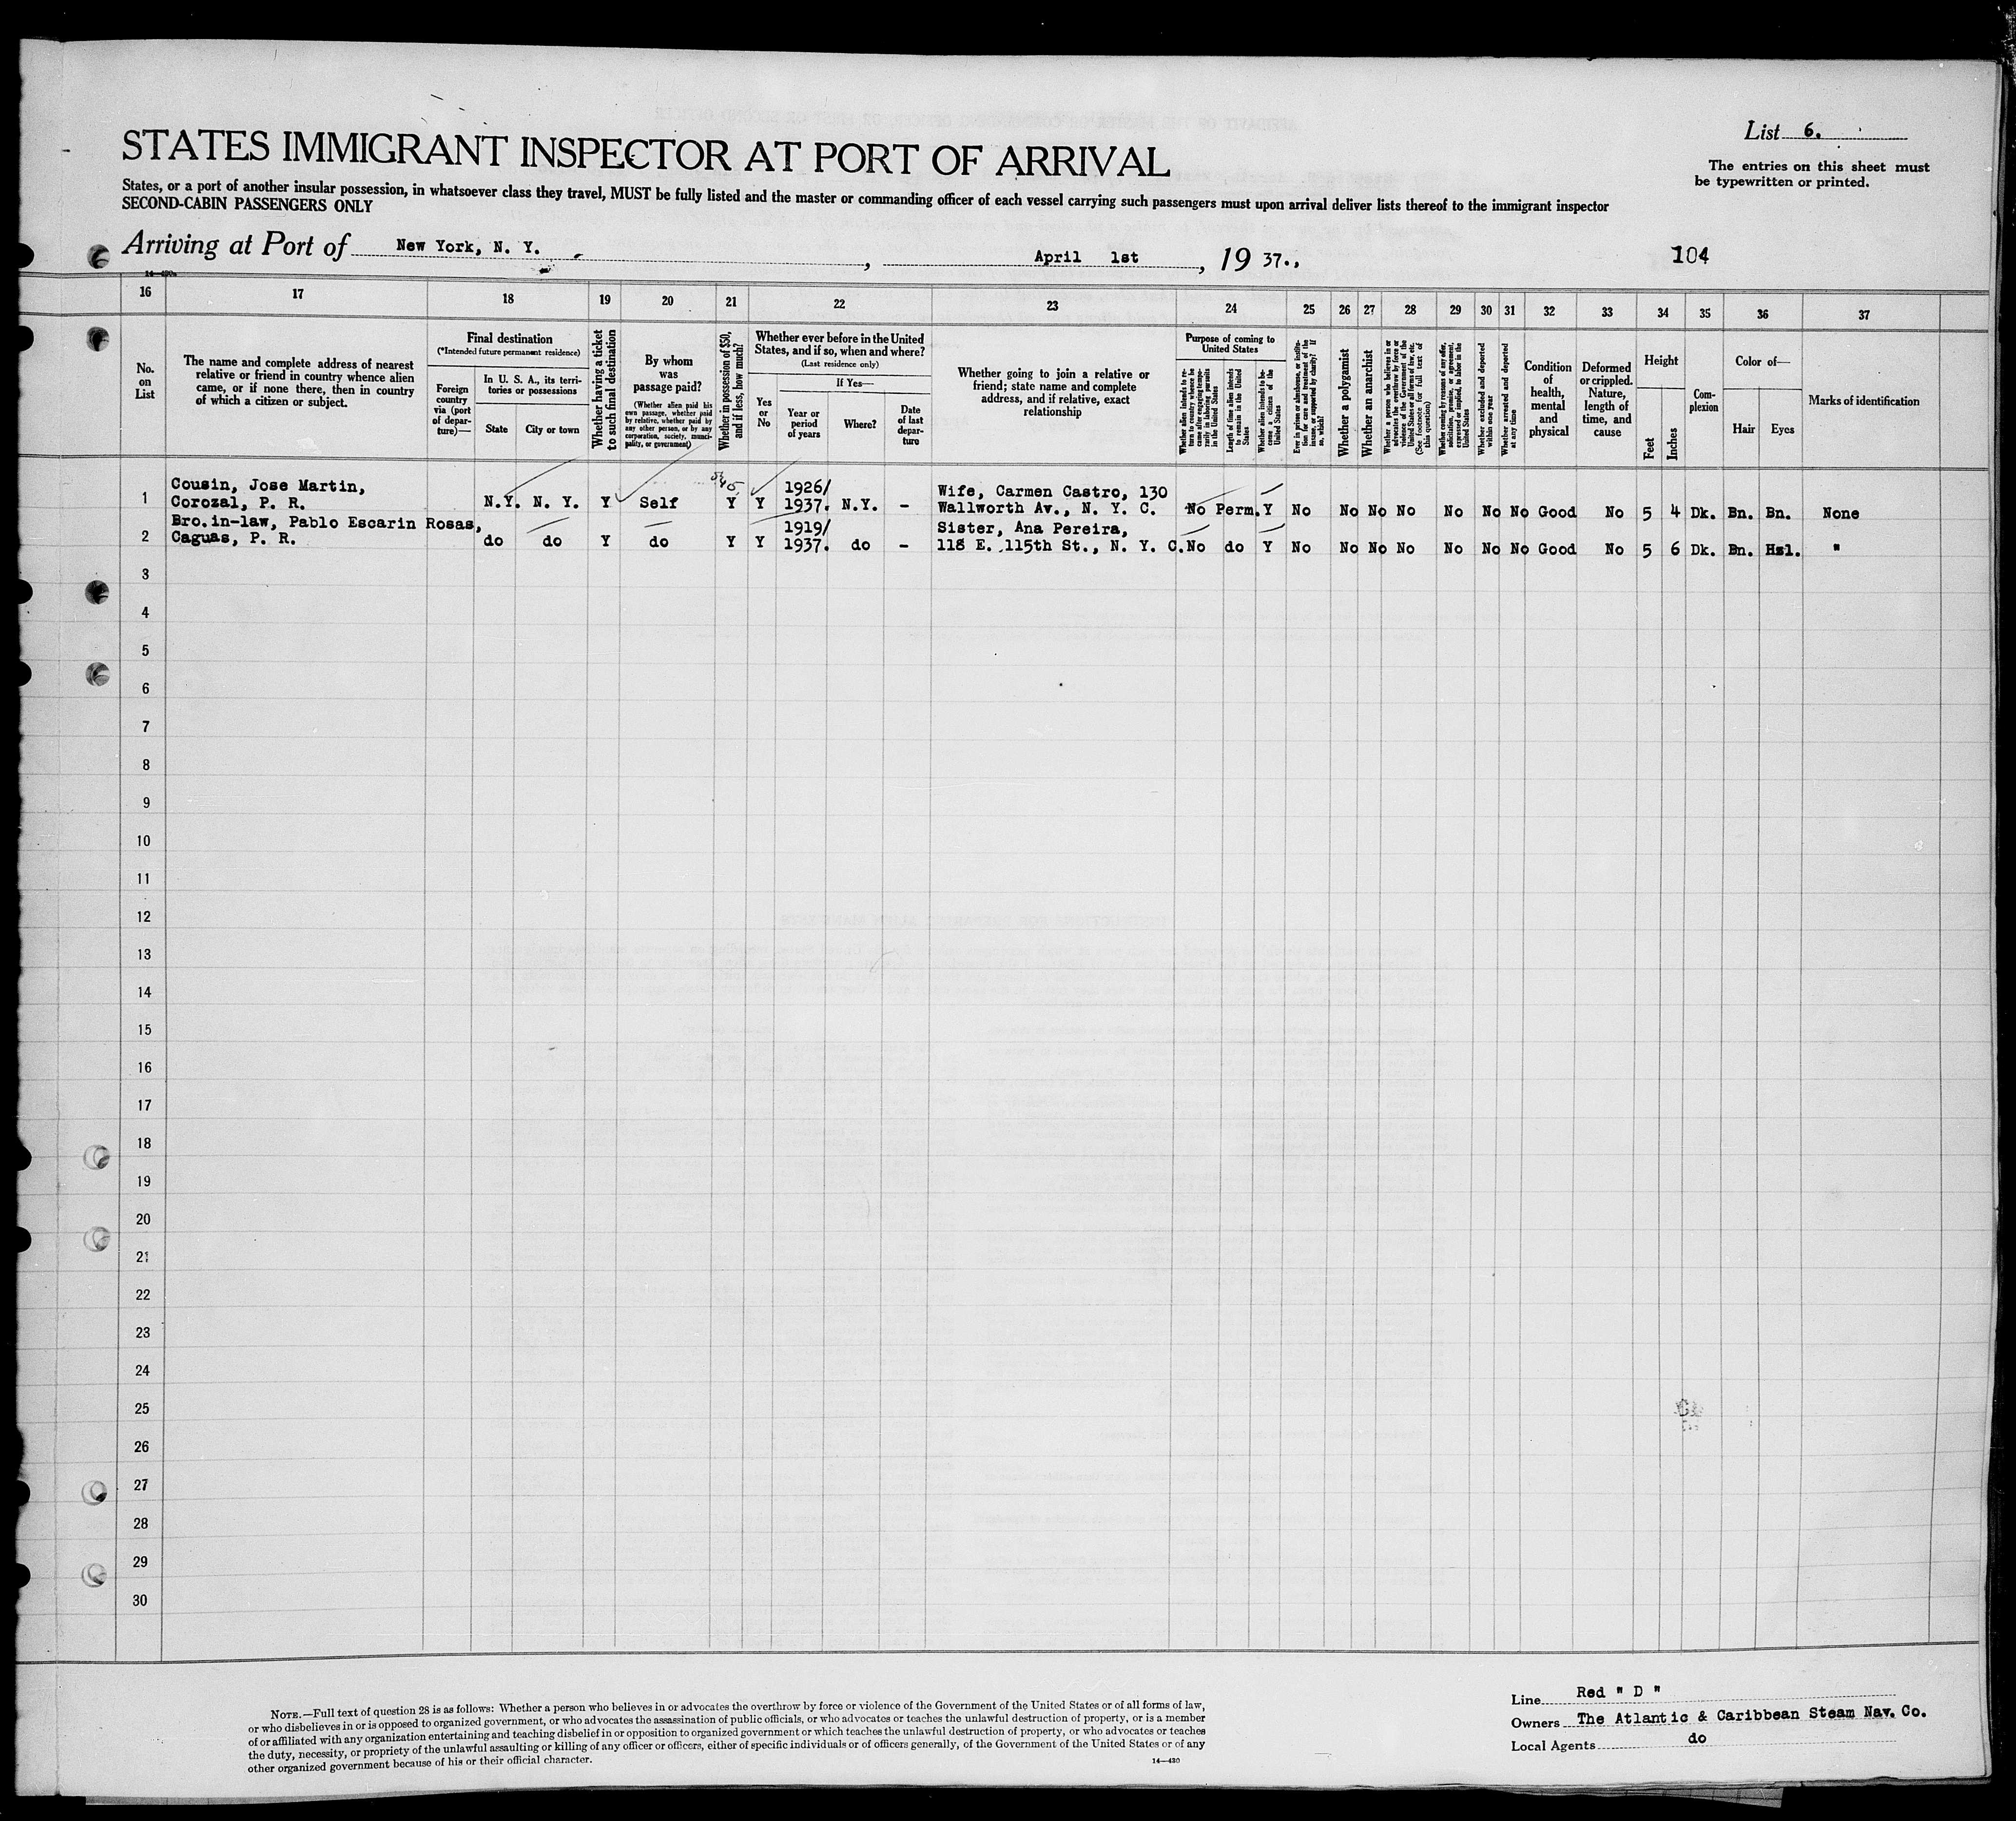 STATES IMMIGRANT INSPECTOR AT PORT OF ARRIVAL
List 6.
The entries on this sheet must
be typewritten or printed.
States, or a port of another insular possession, in whatsoever class they travel, MUST be fully listed and the master or commanding officer of each vessel carrying such passengers must upon arrival deliver lists thereof to the immigrant inspector
SECOND-CABIN PASSENGERS ONLY
Arriving at Port of New York, N. Y. , April 1st , 19 37.,
104
16 17 18 19 20 21 22 23 24 25 26 27 28 29 30 31 32 33 34 35 36 37
No.
on
List
The name and complete address of nearest
relative or friend in country whence alien
came, or if none there, then in country
of which a citizen or subject.
Final destination
(*Intended future permanent residence)
Foreign
country
via (port
of depar-
ture)—
In U. S. A., its terri-
tories or possessions
State
City or town
Whether having a ticket
to such final destination
By whom
was
passage paid?
(Whether alien paid his
own passage, whether paid
by relative, whether paid by
any other person, or by any
corporation, society, munici-
pality, or government)
Whether in possession of $50,
and if less, how much?
Whether ever before in the United
States, and if so, when and where?
(Last residence only)
Yes
or
No
If Yes—
Year or
period
of years
Where?
Date
of last
depar-
ture
Whether going to join a relative or
friend; state name and complete
address, and if relative, exact
relationship
Purpose of coming to
United States
Whether alien intends to re-
turn to country whence he
came after engaging tempo-
rarily in laboring pursuits
in the United States
Length of time alien intends
to remain in the United
States
Whether alien intends to be-
come a citizen of the
United States
Ever in prison or almshouse, or institu-
tion for care and treatment of the
insane, or supported by charity? If
so, which?
Whether a polygamist
Whether an anarchist
Whether a person who believes in or
advocates the overthrow by force or
violence of the Government of the
United States or all forms of law, etc.
(See footnote for full text of
this question)
Whether coming by reasons of any offer,
solicitation, promise, or agreement,
expressed or implied, to labor in the
United States
Whether excluded and deported
within one year
Whether arrested and deported
at any time
Condition
of
health,
mental
and
physical
Deformed
or crippled.
Nature,
length of
time, and
cause
Height
Feet
Inches
Com-
plexion
Color of—
Hair
Eyes
Marks of identification
1 Cousin, Jose Martin,
Corozal, P. R. N.Y. N. Y. Y Self Y Y 1926/
1937. N.Y. - Wife, Carmen Castro, 130
Wallworth Av., N. Y. C. No Perm. Y No No No No No No No Good No 5 4 Dk. Bn. Bn. None
2 Bro.in-law, Pablo Escarin Rosas,
Caguas, P. R. do do Y do Y Y 1919/
1937. do - Sister, Ana Pereira,
118 E. 115th St., N. Y. C. No do Y No No No No No No No Good No 5 6 Dk. Bn. Hzl. "
3
4
5
6
7
8
9
10
11
12
13
14
15
16
17
18
19
20
21
22
23
24
25
26
27
28
29
30
NOTE.—Full text of question 28 is as follows: Whether a person who believes in or advocates the overthrow by force or violence of the Government of the United States or of all forms of law,
or who disbelieves in or is opposed to organized government, or who advocates the assassination of public officials, or who advocates or teaches the unlawful destruction of property, or is a member
of or affiliated with any organization entertaining and teaching disbelief in or opposition to organized government or which teaches the unlawful destruction of property, or who advocates or teaches
the duty, necessity, or propriety of the unlawful assaulting or killing of any officer or officers, either of specific individuals or of officers generally, of the Government of the United States or of any
other organized government because of his or their official character.
14—430
Line Red " D "
Owners The Atlantic & Caribbean Steam Nav. Co.
Local Agents do